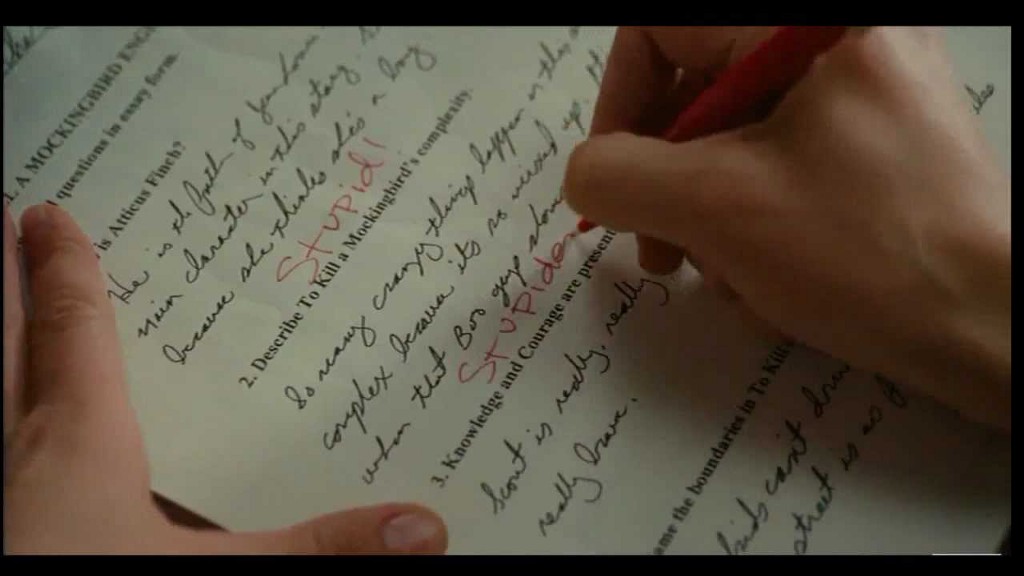 A MOCKINGBIRD
questions in essay form.
is Atticus Finch?
He is the father of
main character in this story.
because she thinks she's a boy
Stupid!
2. Describe To Kill a Mockingbird's complexity.
So many crazy things happen in this
complex because its so mixed up.
when that Boo guy
Stupide
3. Knowledge and Courage are
Scout is really, really
really brave.
the boundaries in To
kids can't
street is as